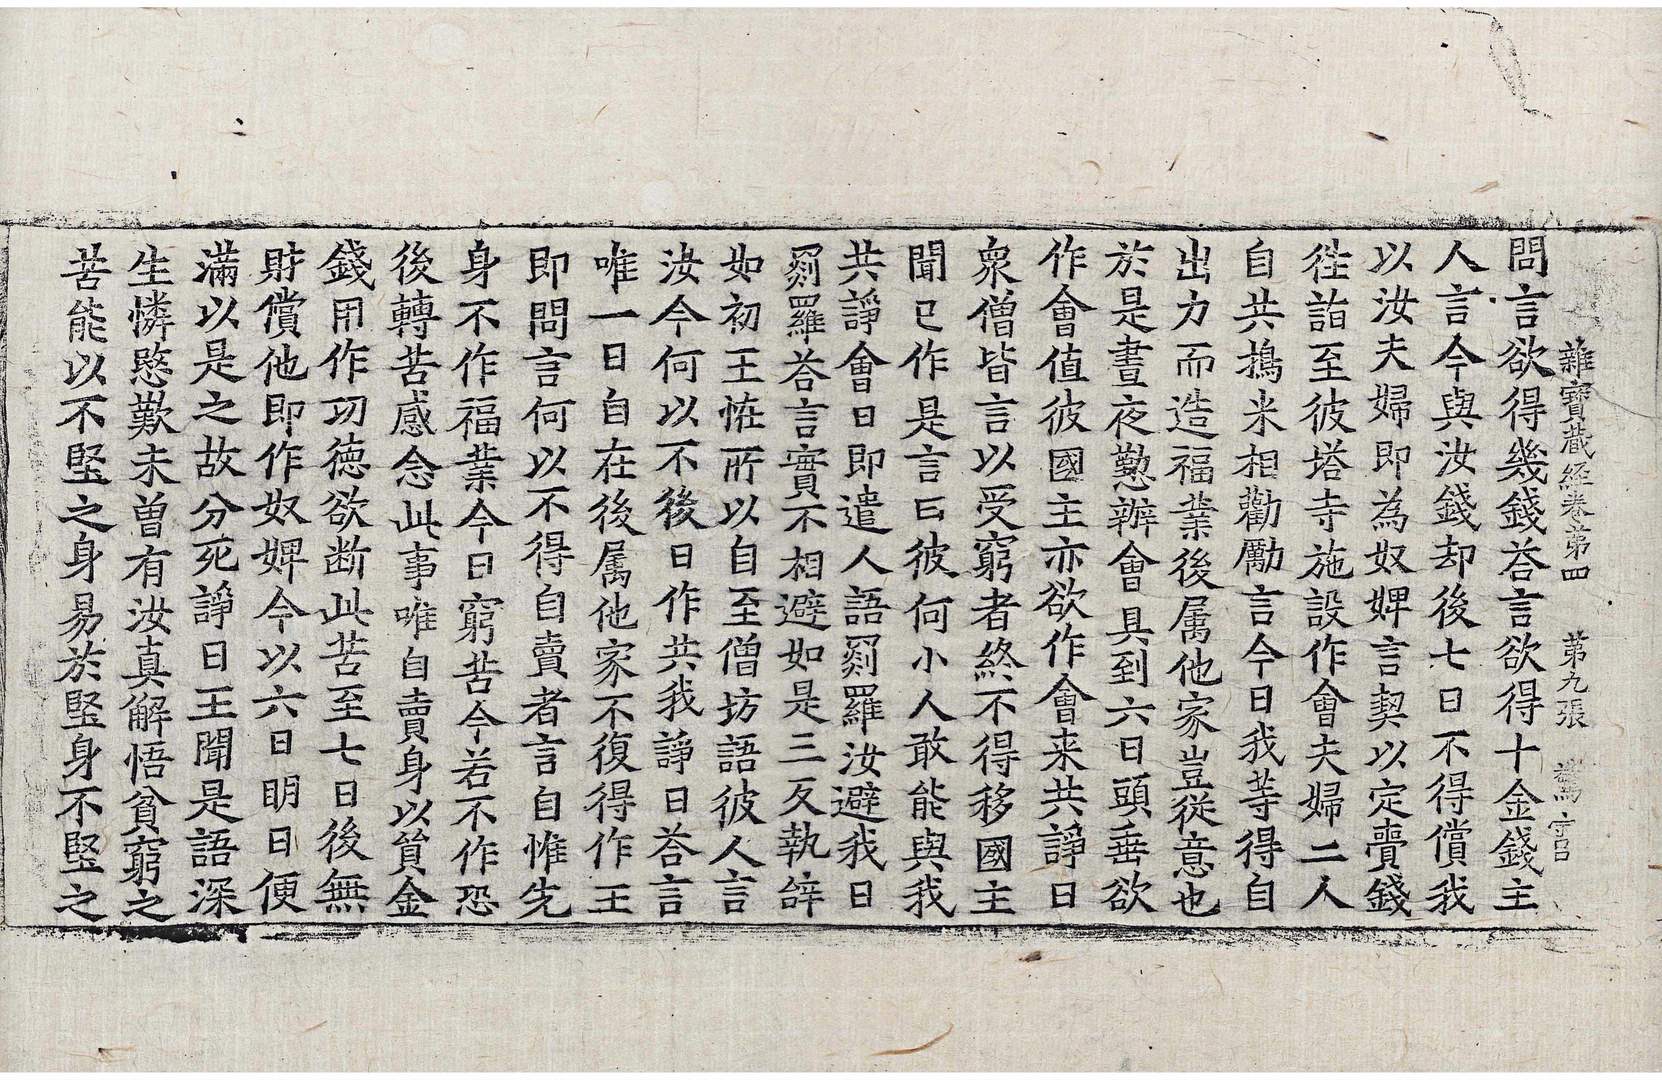 雜寶蔵経卷苐四 苐九張 
問言欲得幾錢荅言欲得十金錢主
人言今與汝錢却後七日不得償我
以汝夫婦即為奴婢言契以定賷錢
徃詣至彼塔寺施設作會夫婦二人
自共擣米相勸勵言今日我等得自
出力而造福業後属他家豈從意也
於是晝夜懃辦會具到六日頭垂欲
作會值彼國主亦欲作會来共諍日
衆僧皆言以受窮者終不得移國主
聞已作是言曰彼何小人敢能與我
共諍會日即遣人語罽羅汝避我日
罽羅荅言實不相避如是三反執辝
如初王恠所以自至僧坊語彼人言
汝今何以不後日作共我諍日荅言
唯一日自在後属他家不復得作王
即問言何以不得自賣者言自惟先
身不作福業今日窮苦今若不作恐
後轉苦感念此事唯自賣身以貿金
錢用作功徳欲断此苦至七日後無
財償他即作奴婢今以六日明日便
滿以是之故分死諍日王聞是語深
生憐愍歎未曽有汝真解悟貧窮之
苦能以不堅之身易於堅身不堅之